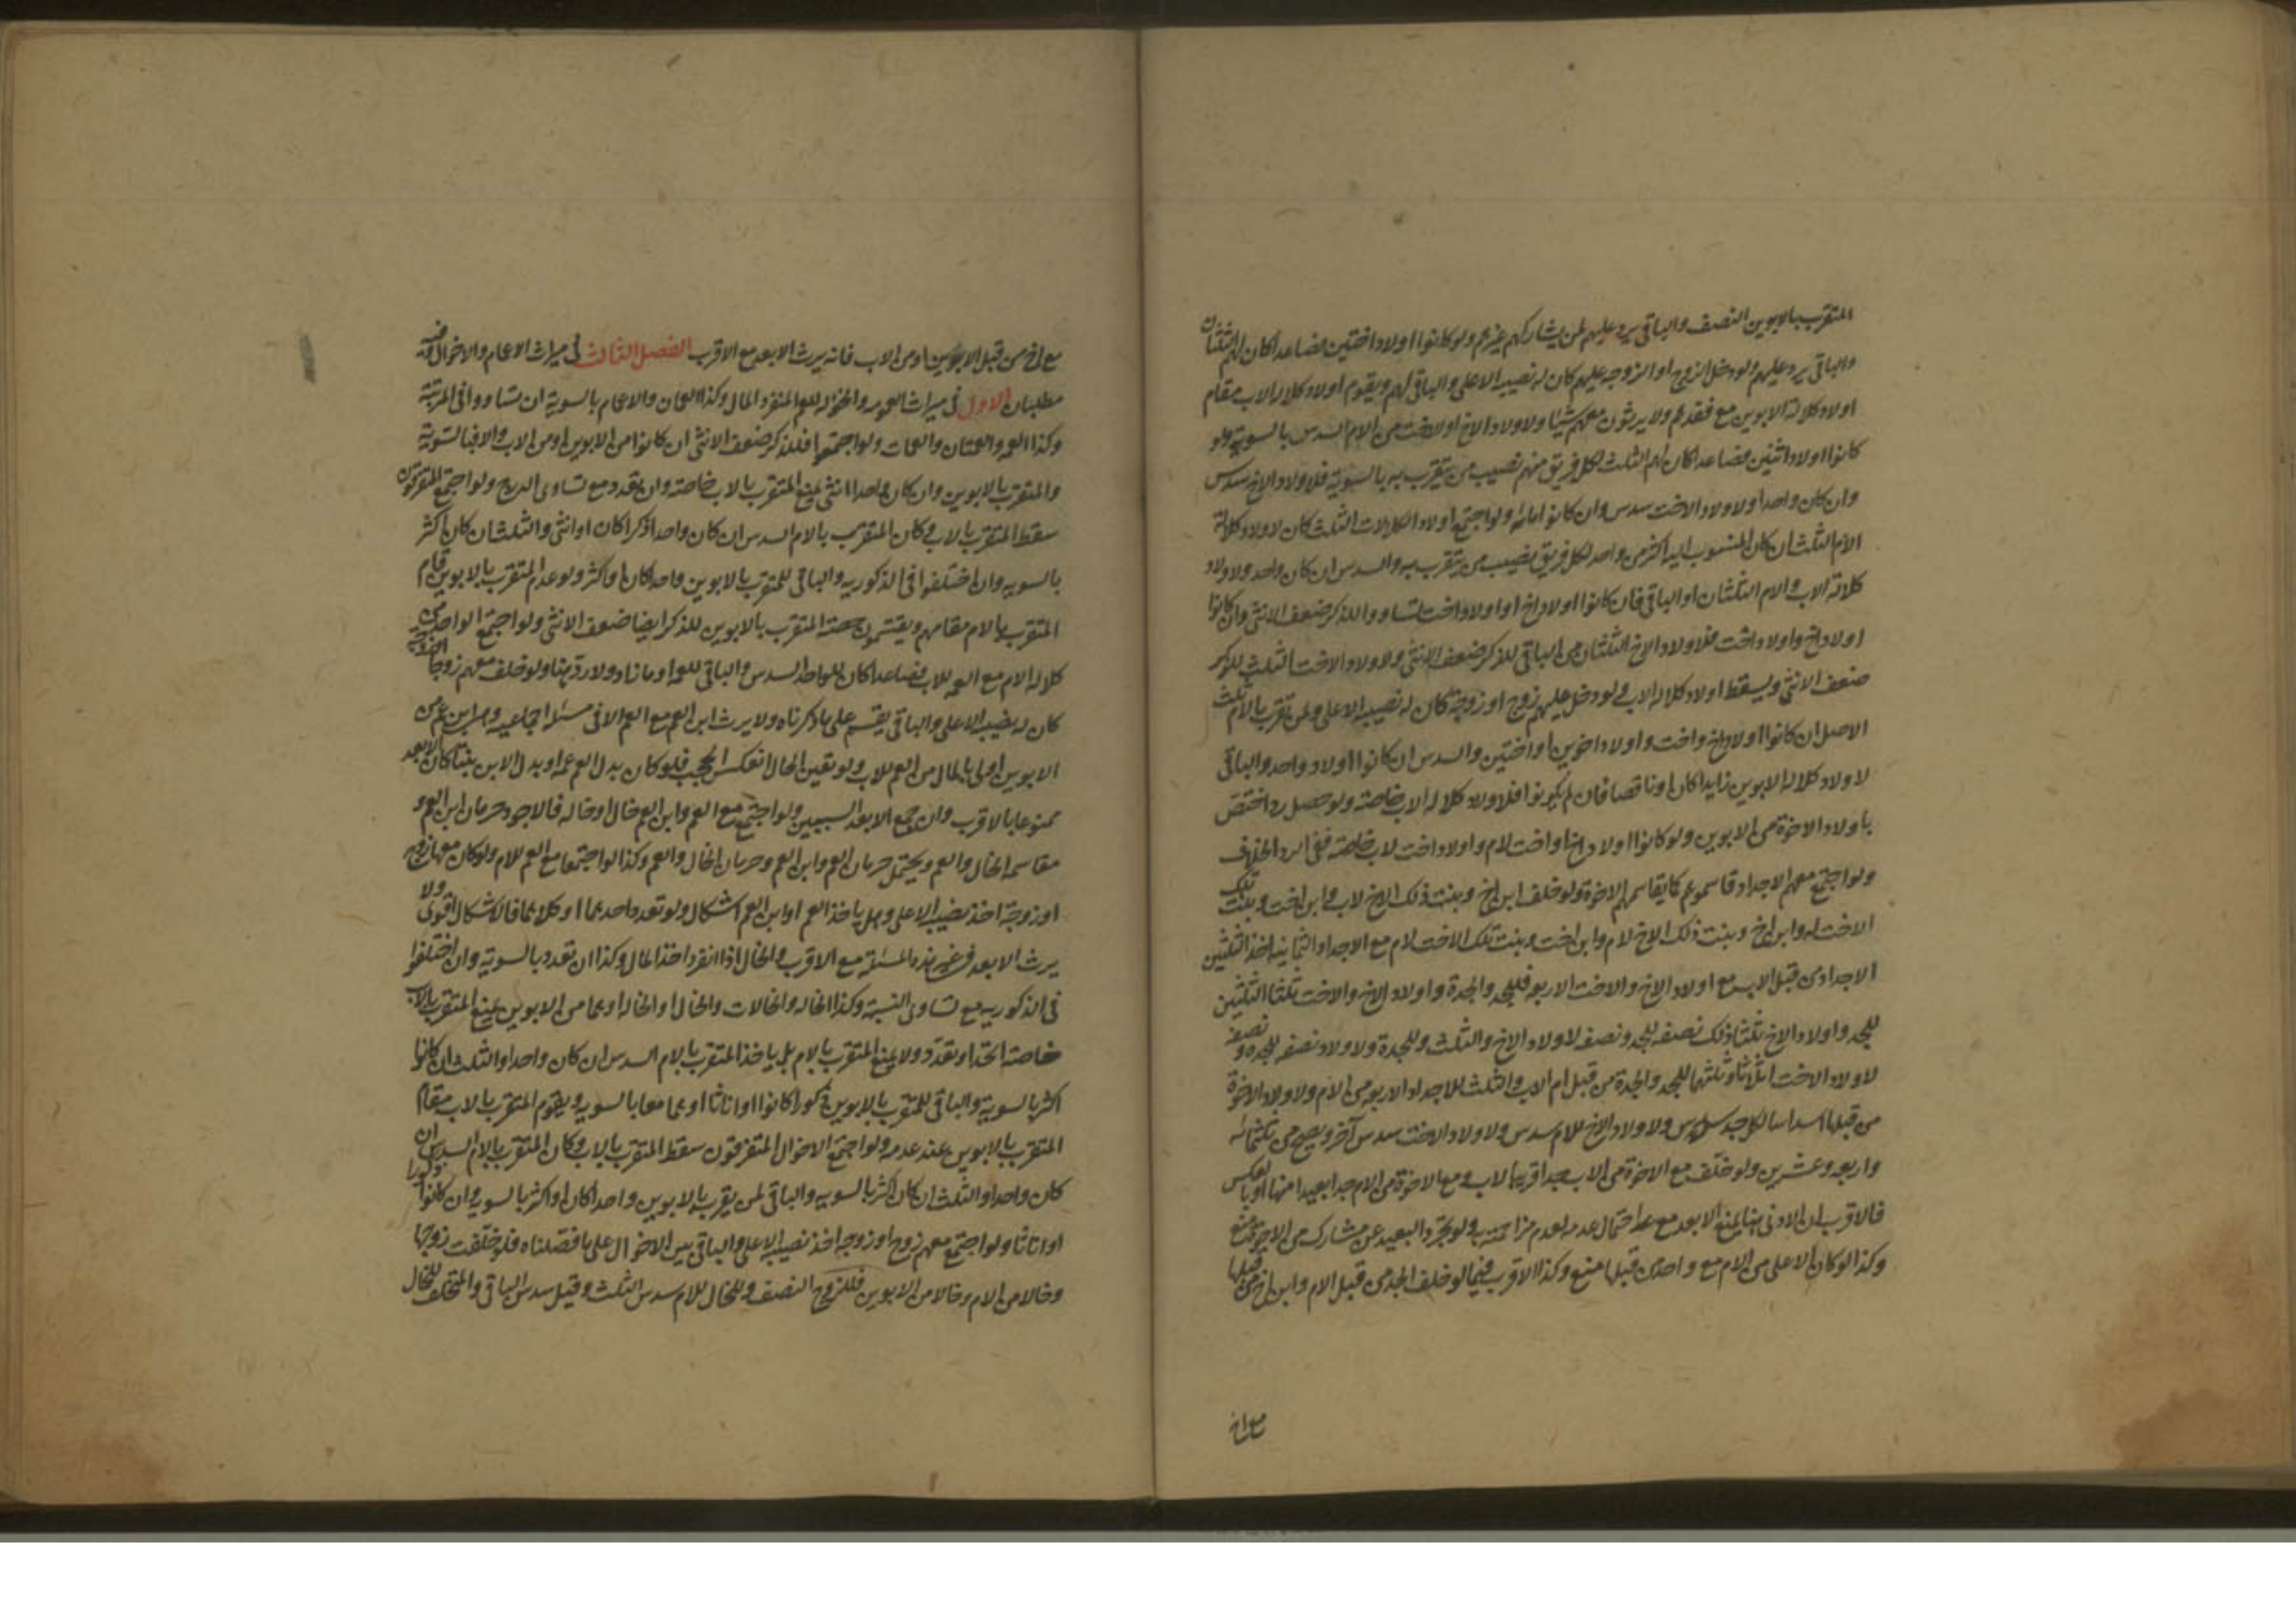 المتقرب بالابوين النصف والباقي يرد عليهم ان لم يشاركهم غيرهم ولو كانوا اولاد اختين فصاعدا كان لهم الثلثان
والباقي يرد عليهم ولو دخل الزوج او الزوجة عليهم كان له نصيبه الاعلى والباقي لهم ويقوم اولاد كلالة الاب مقام
اولاد كلالة الابوين مع فقدهم ولا يرثون معهم شيئا ولاولاد الاخ او الاخت من الام السدس بالسوية ولو
كانوا اولاد اثنين فصاعدا كان لهم الثلث لكل فريق منهم نصيب من يتقرب به بالسوية فلاولاد الاخ سدس
وان كان واحدا ولاولاد الاخت سدس وان كانوا مائة ولو اجتمع اولاد الكلالات الثلث كان لاولاد كلالة
الام الثلث ان كان المنسوب اليه اكثر من واحد لكل فريق نصيب من يتقرب به والسدس ان كان واحد ولاولاد
كلالة الاب والام الثلثان او الباقي فان كانوا اولاد اخ او اولاد اخت تساووا للذكر ضعف الانثى وان كانوا
اولاد اخ واولاد اخت فلاولاد الاخ الثلثان من الباقي للذكر ضعف الانثى ولاولاد الاخت الثلث للذكر
ضعف الانثى ويسقط اولاد كلالة الاب ولو دخل عليهم زوج او زوجة كان له نصيبه الاعلى ولمن تقرب بالام ثلث
الاصل ان كانوا اولاد اخ واخت واولاد اخوين او اختين والسدس ان كانوا اولاد واحد والباقي
لاولاد كلالة الابوين زايدا كان او ناقصا فان لم يكونوا فلاولاد كلالة الاب خاصة ولو حصل رد اختص
باولاد الاخوة من الابوين ولو كانوا اولاد اخ او اخت لام واولاد اخت لاب خاصة ففي الرد الخلاف
ولو اجتمع معهم الاجداد قاسموهم كما يقاسمهم الاخوة ولو خلف ابن اخ وبنت ذلك الاخ لاب وابن اخت وبنت تلك
الاخت له وابن اخ وبنت ذلك الاخ لام وابن اخت وبنت تلك الاخت لام مع الاجداد الثمانية اخذ الثلثين
الاجداد من قبل الاب مع اولاد الاخ والاخت الاربعة فللجد والجدة واولاد الاخ والاخت ثلثا الثلثين
للجد واولاد الاخ ثلثا ذلك نصفه للجد ونصفه لاولاد الاخ والثلث للجدة ولاولاد نصفه للجدة ونصفه
لاولاد الاخت اثلاثا وثلثهما للجد والجدة من قبل ام الاب والثلث للاجداد الاربعة من الام ولاولاد الاخوة
من قبلها اسداسا لكل جد سدس ولاولاد الاخ للام سدس ولاولاد الاخت سدس آخر ويصح من ثلثمائة
واربعة وعشرين ولو خلف مع الاخوة من الاب جدا قريبا لاب ومع الاخوة من الام جدا بعيدا منها او بالعكس
فالاقرب ان الادنى هنا يمنع الابعد مع احتمال عدمه لعدم مزاحمته به ولو تجرد البعيد عن مشارك من الاخوة منع
وكذا لو كان الاعلى من الام مع واحد من قبلها منع وكذا الاقرب فيما لو خلف الجد من قبل الام وابن اخ من قبلها
مع اخ
مع اخ من قبل الابوين او من الاب فانه يرث الابعد مع الاقرب الفصل الثالث في ميراث الاعمام والاخوال وفيه
مطلبان الاول في ميراث العمومة والخؤولة للعم المنفرد المال وكذا العمان والاعمام بالسوية ان تساووا في المرتبة
وكذا العمة والعمتان والعمات ولو اجتمعوا فللذكر ضعف الانثى ان كانوا من الابوين او من الاب والا فبالسوية
والمتقرب بالابوين وان كان واحدا انثى يمنع المتقرب بالاب خاصة وان تعدد مع تساوي الدرج ولو اجتمع المتفرقون
سقط المتقرب بالاب وكان المتقرب بالام السدس ان كان واحدا ذكرا كان او انثى والثلث ان كان اكثر
بالسوية وان اختلفوا في الذكورية والباقي للمتقرب بالابوين واحدا كان او اكثر ولو عدم المتقرب بالابوين قام
المتقرب بالاب مقامهم ويقتسمون حصة المتقرب بالابوين للذكر ايضا ضعف الانثى ولو اجتمع الواحد من
كلالة الام مع العمة للاب فصاعدا كان للواحد السدس والباقي للعمة او ما زاد ولا رد هنا ولو خلف معهم زوجا
كان له نصيبه الاعلى والباقي يقسم على ما ذكرناه ولا يرث ابن العم مع العم الا في مسئلة اجماعية وهي ابن عم من
الابوين اولى بالمال من العم للاب ولو تغير الحال انعكس الحجب فلو كان بدل العم عمة او بدل الابن بنتا كان الابعد
ممنوعا بالاقرب وان جمع الابعد السببين ولو اجتمع مع العم وابن العم خال او خالة فالاجود حرمان ابن العم و
مقاسمة الخال والعم ويحتمل حرمان العم وابن العم وحرمان الخال والعم وكذا لو اجتمعا مع العم للام ولو كان معهما زوج
او زوجة اخذ نصيبه الاعلى وهل ياخذ العم او ابن العم اشكال ولو تعدد واحدهما او كلاهما فالاشكال اقوى ولا
يرث الابعد في غير هذه المسئلة مع الاقرب والخال اذا انفرد اخذ المال وكذا ان تعدد بالسوية وان اختلفوا
في الذكورية مع تساوي النسبة وكذا الخالة والخالات والخال او الخالة او هما من الابوين يمنع المتقرب بالاب
خاصة اتحد او تعدد ولا يمنع المتقرب بالام بل ياخذ المتقرب بالام السدس ان كان واحدا والثلث ان كانوا
اكثر بالسوية والباقي للمتقرب بالابوين ذكورا كانوا او اناثا او هما معا بالسوية ويقوم المتقرب بالاب مقام
المتقرب بالابوين عند عدمه ولو اجتمع الاخوال المتفرقون سقط المتقرب بالاب وكان المتقرب بالام السدس ان
كان واحدا والثلث ان كان اكثر بالسوية والباقي لمن تقرب بالابوين واحدا كان او اكثر بالسوية وان كانوا ذكورا
او اناثا ولو اجتمع معهم زوج او زوجة اخذ نصيبه الاعلى والباقي بين الاخوال على ما فصلناه فلو خلفت زوجها
وخالا من الام وخالا من الابوين فللزوج النصف وللخال للام سدس الثلث وقيل سدس الباقي والمتخلف للخال